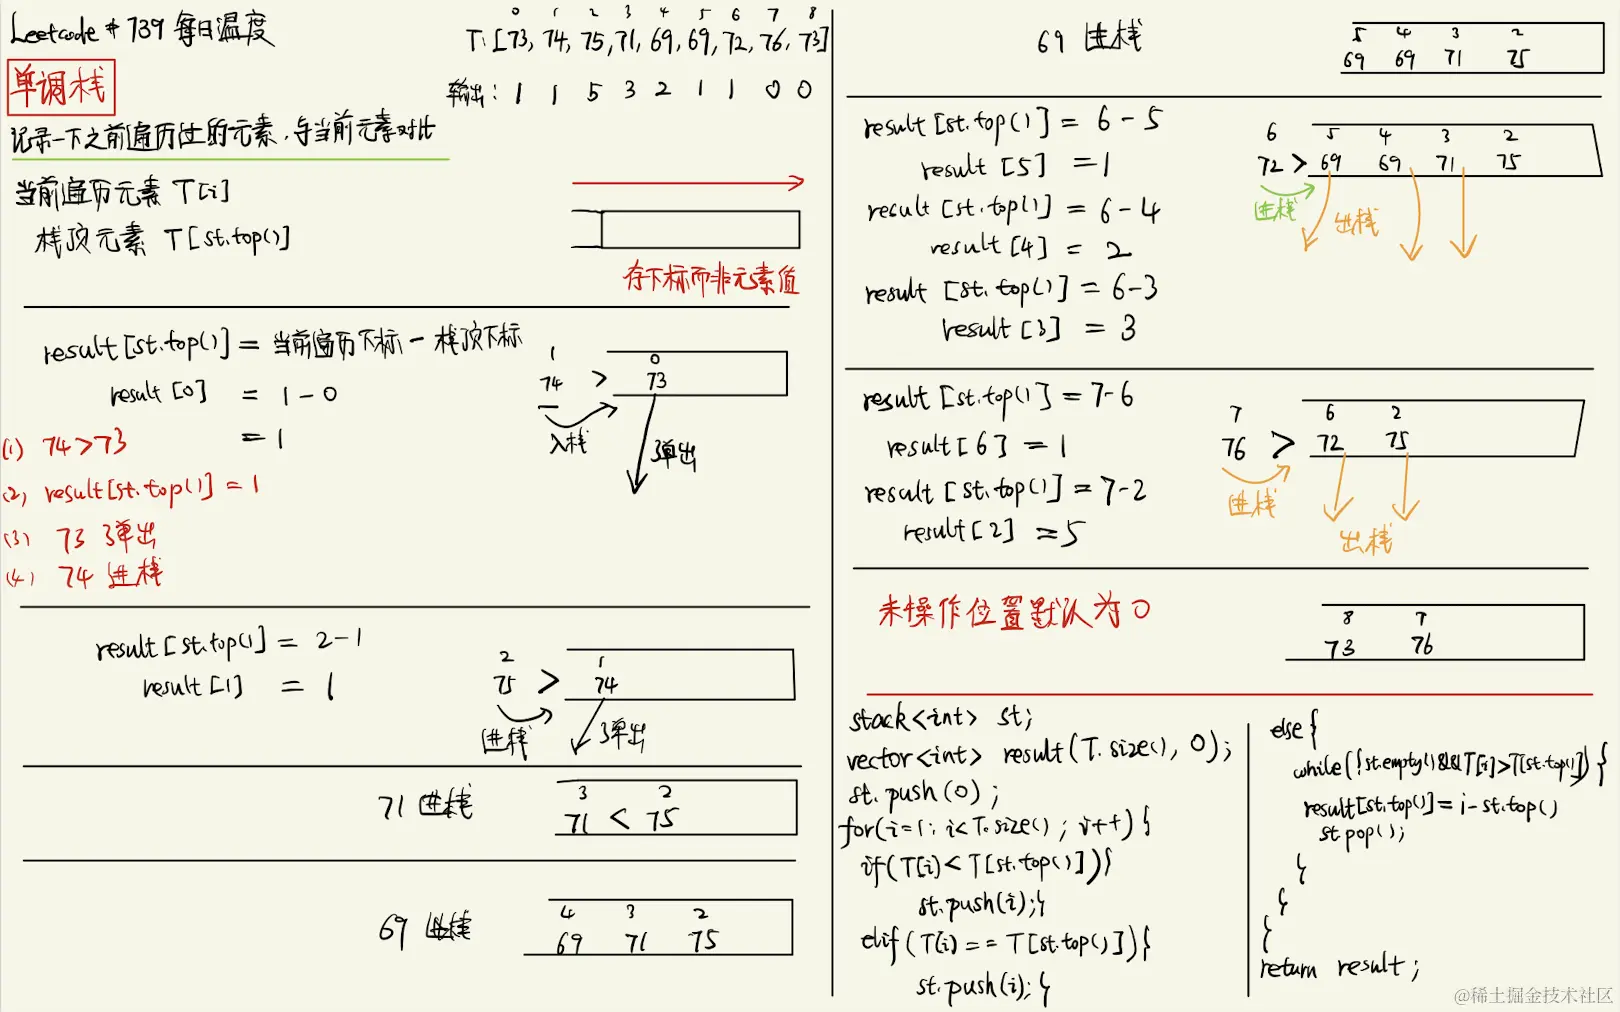 Leetcode # 739 每日温度
单调栈
0 1 2 3 4 5 6 7 8
T: [73, 74, 75, 71, 69, 69, 72, 76, 73]
输出: 1 1 5 3 2 1 1 0 0
记录一下之前遍历过的元素,与当前元素对比
当前遍历元素 T[i]
栈顶元素 T[st.top()]
存下标而非元素值
result[st.top()] = 当前遍历下标 - 栈顶下标
result[0] = 1 - 0
= 1
1 0
74 > 73
入栈
弹出
(1) 74>73
(2) result[st.top()] = 1
(3) 73 弹出
(4) 74 进栈
result[st.top()] = 2-1
result[1] = 1
2 1
75 > 74
进栈
弹出
71 进栈
3 2
71 < 75
69 进栈
4 3 2
69 71 75
69 进栈
5 4 3 2
69 69 71 75
result[st.top()] = 6-5
result[5] = 1
result[st.top()] = 6-4
result[4] = 2
result[st.top()] = 6-3
result[3] = 3
6 5 4 3 2
72 > 69 69 71 75
进栈
出栈
result[st.top()] = 7-6
result[6] = 1
result[st.top()] = 7-2
result[2] = 5
7 6 2
76 > 72 75
进栈
出栈
未操作位置默认为0
8 7
73 76
stack<int> st;
vector<int> result(T.size(), 0);
st.push(0);
for(i=1; i<T.size(); i++){
if(T[i]<T[st.top()]){
st.push(i);}
elif(T[i]==T[st.top()]){
st.push(i);}
else{
while(!st.empty()&&T[i]>T[st.top()]){
result[st.top()]=i-st.top()
st.pop();
}
}
}
return result;
@稀土掘金技术社区